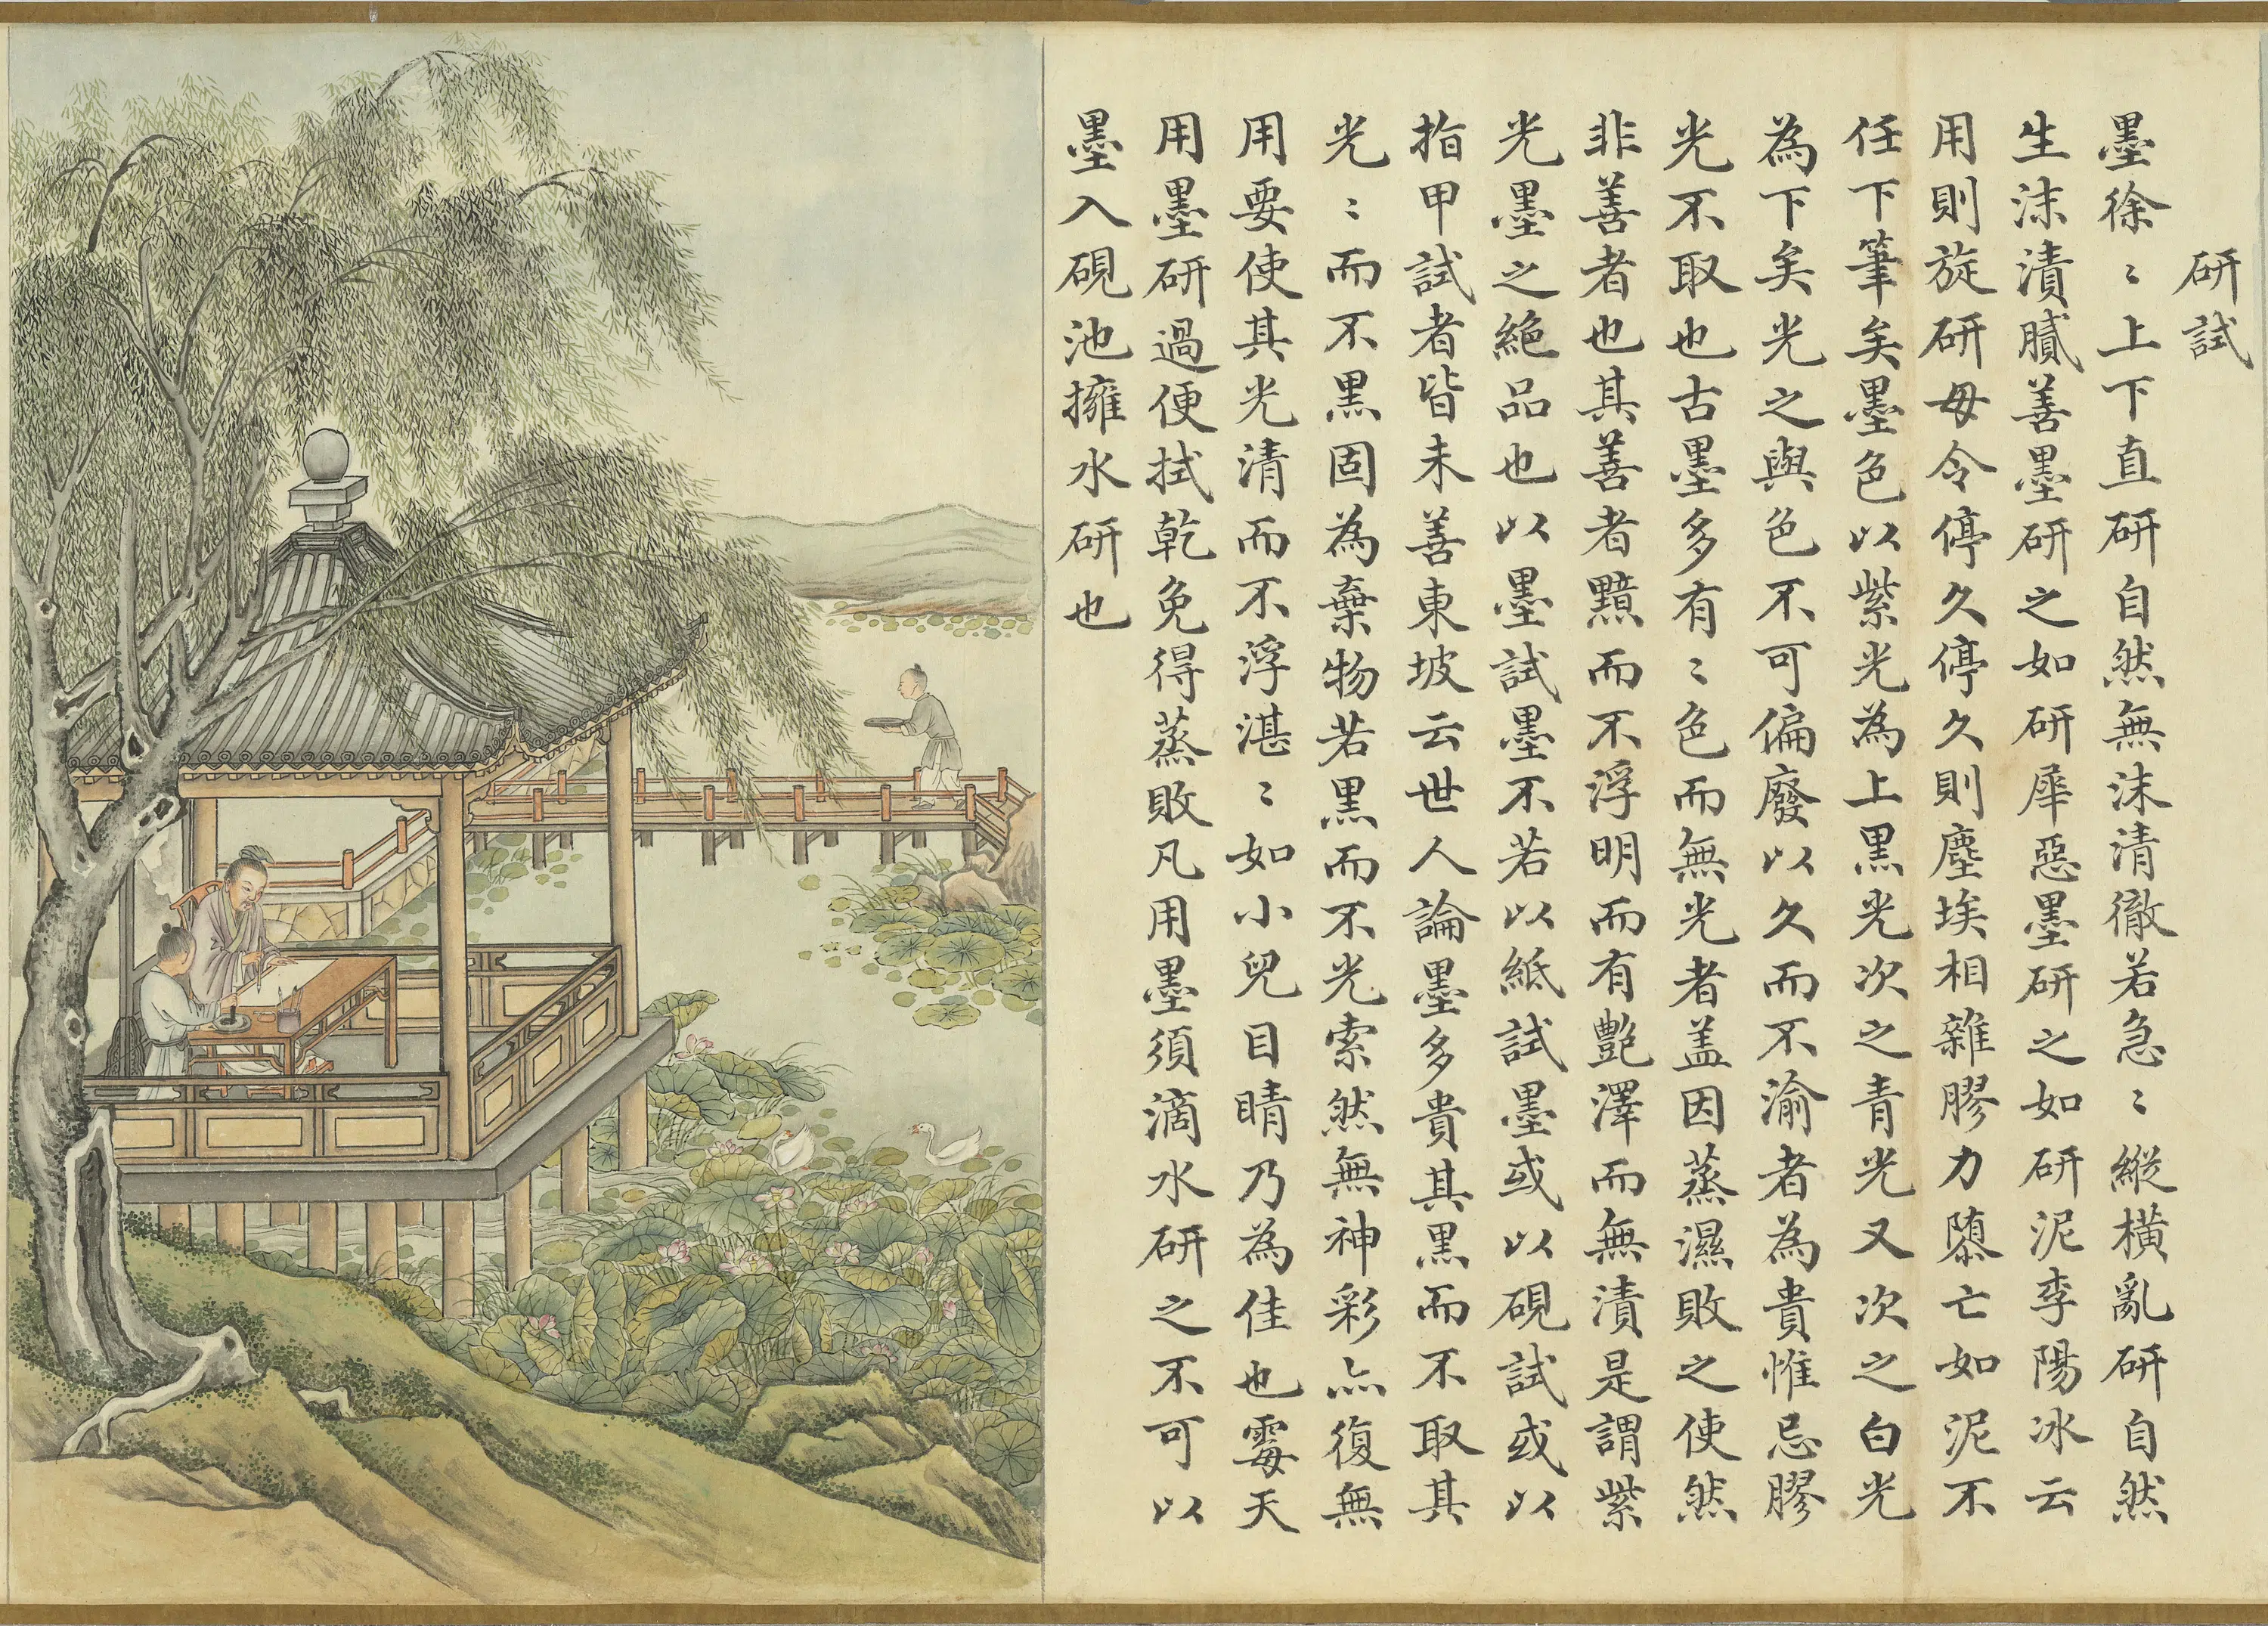 研試
墨徐〻上下直研自然無沫清徹若急〻縱橫亂研自然
生沫漬膩善墨研之如研犀惡墨研之如研泥李陽冰云
用則旋研毋令停久停久則塵埃相雜膠力隳亡如泥不
任下筆矣墨色以紫光為上黑光次之青光又次之白光
為下矣光之與色不可偏廢以久而不渝者為貴惟忌膠
光不取也古墨多有〻色而無光者盖因蒸濕敗之使然
非善者也其善者黯而不浮明而有艷澤而無漬是謂紫
光墨之絕品也以墨試墨不若以紙試墨或以硯試或以
指甲試者皆未善東坡云世人論墨多貴其黑而不取其
光〻而不黑固為棄物若黑而不光索然無神彩亦復無
用要使其光清而不浮湛〻如小兒目睛乃為佳也霉天
用墨研過便拭乾免得蒸敗凡用墨須滴水研之不可以
墨入硯池擁水研也